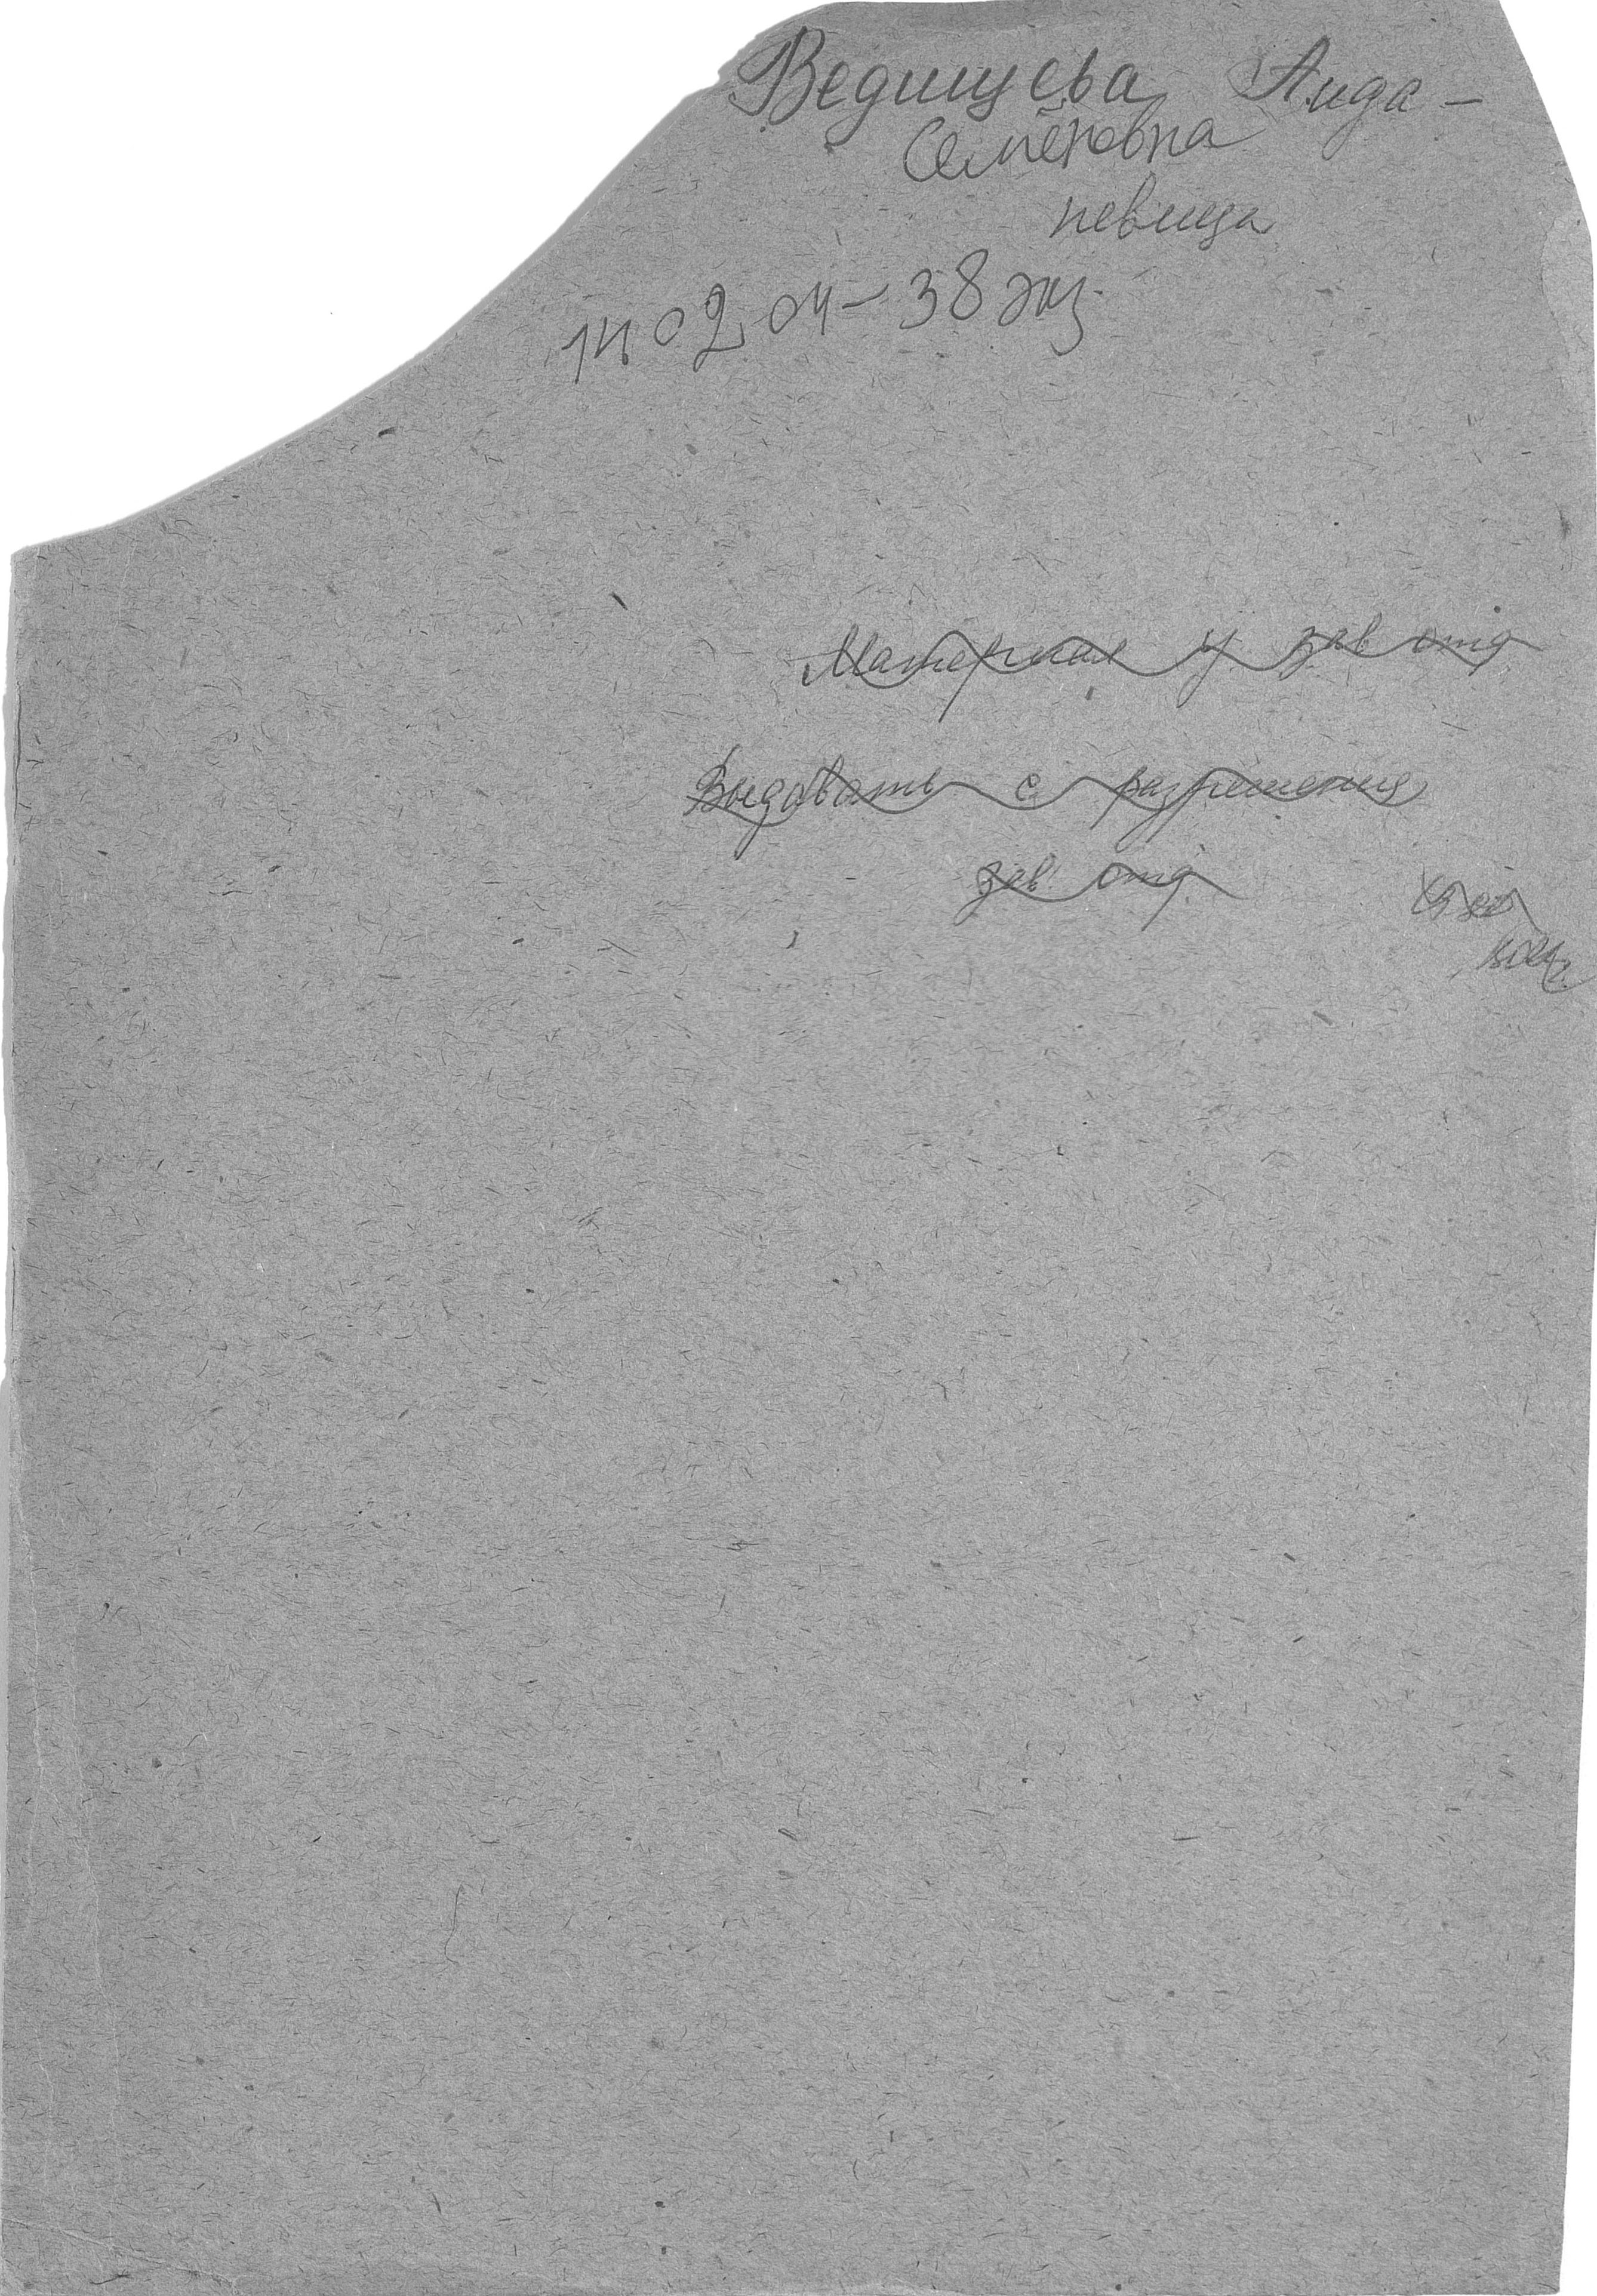 Ведищева Аида -
Семёновна
певица
14 02 04 - 38 экз.
Материал у зав отд
Выдавать с разрешения
зав. отд.